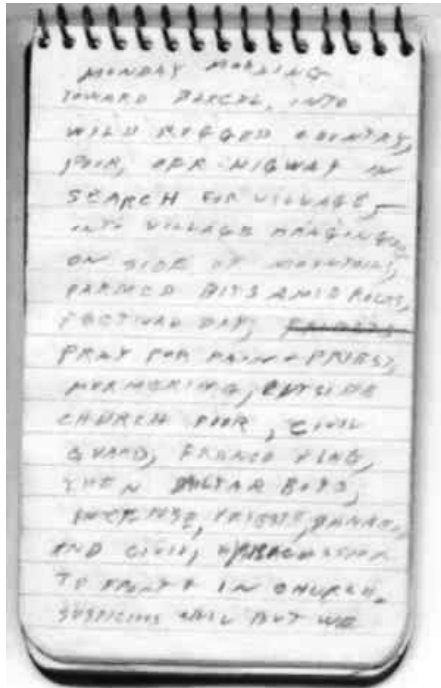 MONDAY MORNING
TOWARD BARCEL, INTO
WILD RUGGED COUNTRY,
POOR, OFF HIGWAY IN
SEARCH FOR VILLAGE,
INTO VILLAGE
ON SIDE OF MOUNTAINS,
FARMED BITS AMID ROCKS,
FESTIVAL DAY,
PRAY FOR RAIN + PRIEST,
MURMERING, OUTSIDE
CHURCH DOOR, CIVIL
GUARD, FRANCO FLAG,
THEN ALTAR BOYS,
PRIESTS,
AND CIVIL,
TO FRONT + IN CHURCH.
SUSPICIOUS BUT WE